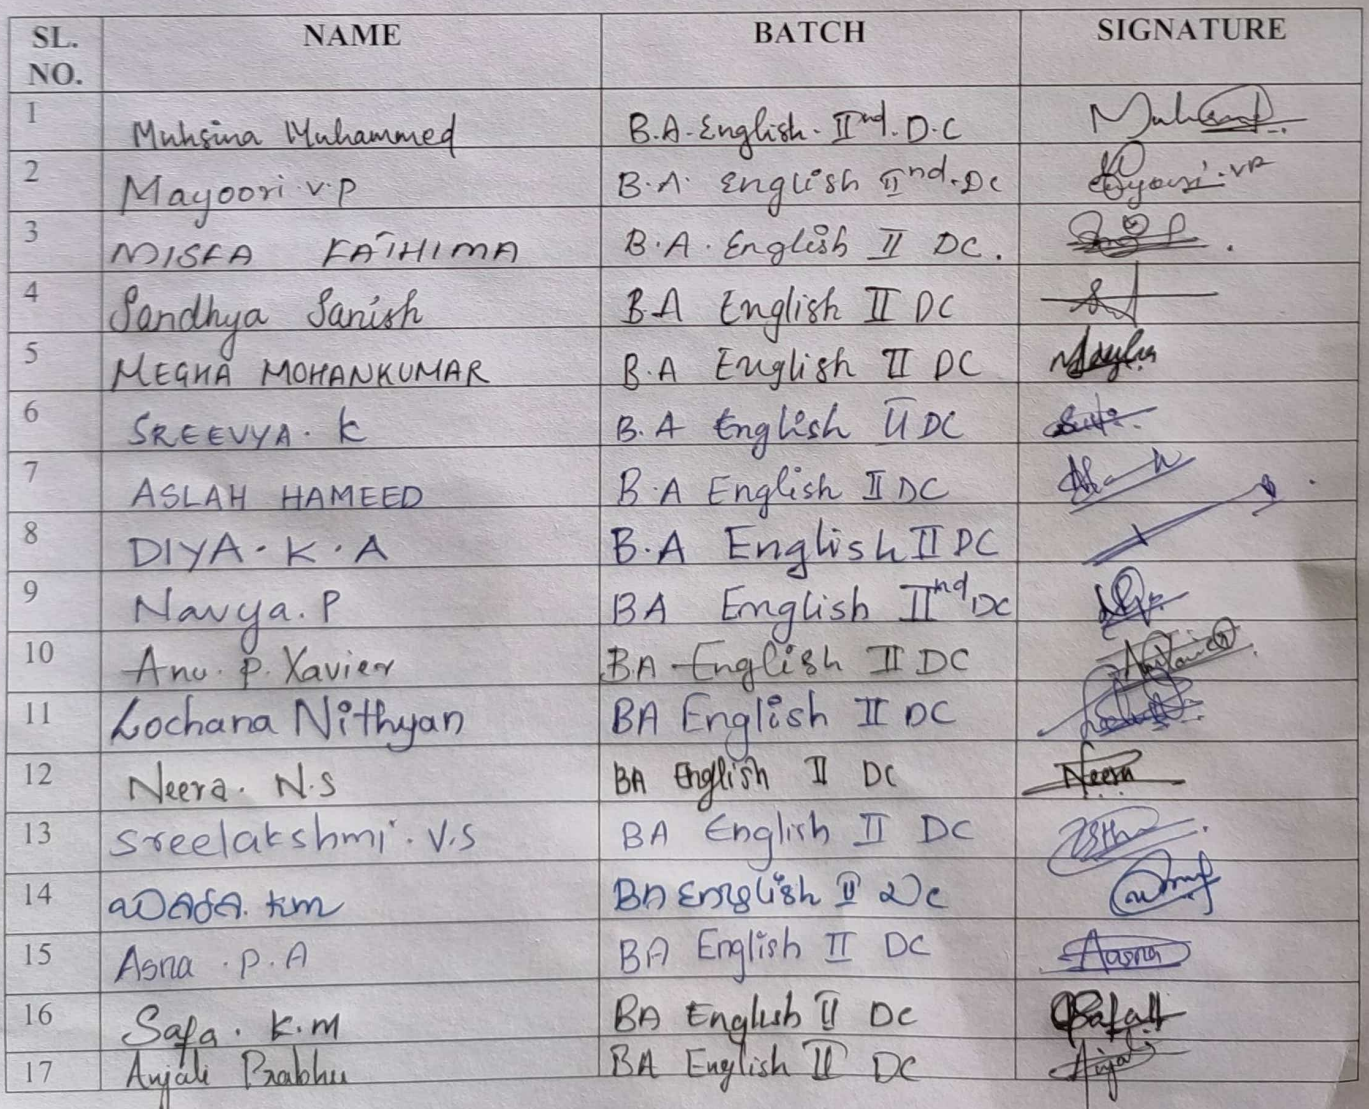 SL. NO. NAME BATCH SIGNATURE
1 Muhsina Muhammed B.A. English. IInd. D.C
2 Mayoori v.p B.A. English IInd. Dc
3 MISFA FATHIMA B.A. English II DC.
4 Sandhya Sanish B.A English II DC
5 MEGHA MOHANKUMAR B.A English II DC
6 SREEVYA. K B.A English II DC
7 ASLAH HAMEED B.A English II DC
8 DIYA. K. A B.A English II DC
9 Navya. P BA English IInd DC
10 Anu. P. Xavier B.A English II DC
11 Lochana Nithyan BA English II DC
12 Neera. N.S BA English II DC Neera
13 Sreelakshmi. V.S BA English II DC
14 km BA English II Dc
15 Asna. P. A BA English II DC Aasna
16 Safa. K.M BA English II DC Safa
17 Anjali Prabhu BA English II DC Anjali